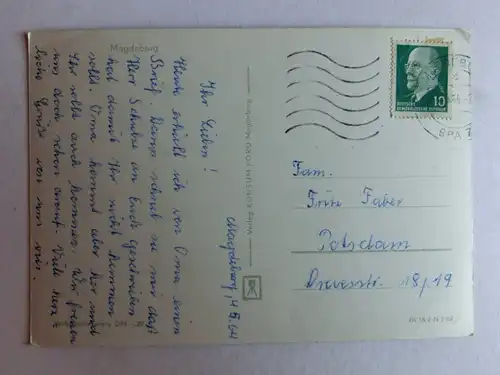 Magdeburg
Magdeburg, 4.5.64
Ihr Lieben!
Heute erhielt ich von Oma einen
Brief. Darin schreibt sie mir daß
Herr Schulze an Euch geschrieben
hat damit Ihr nicht kommen
sollt. Oma kommt aber her und
Ihr sollt auch kommen. Wir freuen
uns doch schon darauf. Viele
Grüße von uns
10
DEUTSCHE DEMOKRATISCHE REPUBLIK
SPA
Fam.
Fritz Faber
Potsdam
18/19